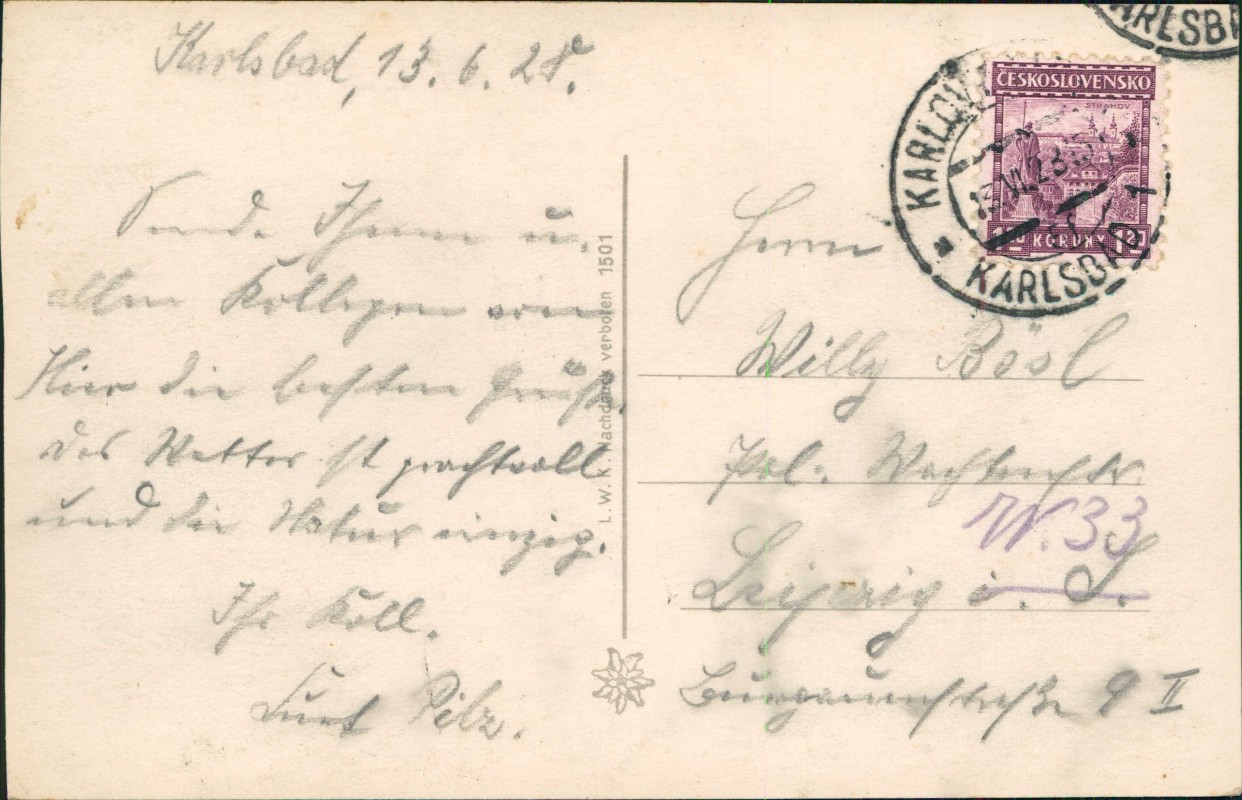 Karlsbad, 13. 6. 28.
Sende Ihnen u.
allen Kollegen von
Hier die besten Grüße,
das Wetter ist prachtvoll
und die Natur einzig.
Ihr Koll.
Kurt Pilz.
L. W. K. Nachdruck verboten 1501
KARLSBA
ČESKOSLOVENSKO
STRAHOV
1.20 KORUNY 1.20
KARLOV
13.VI.28
1
* KARLSBAD
Herrn
Willy Bösl
Pol. Wachtmstr.
W. 33
Leipzig i. S.
9 II